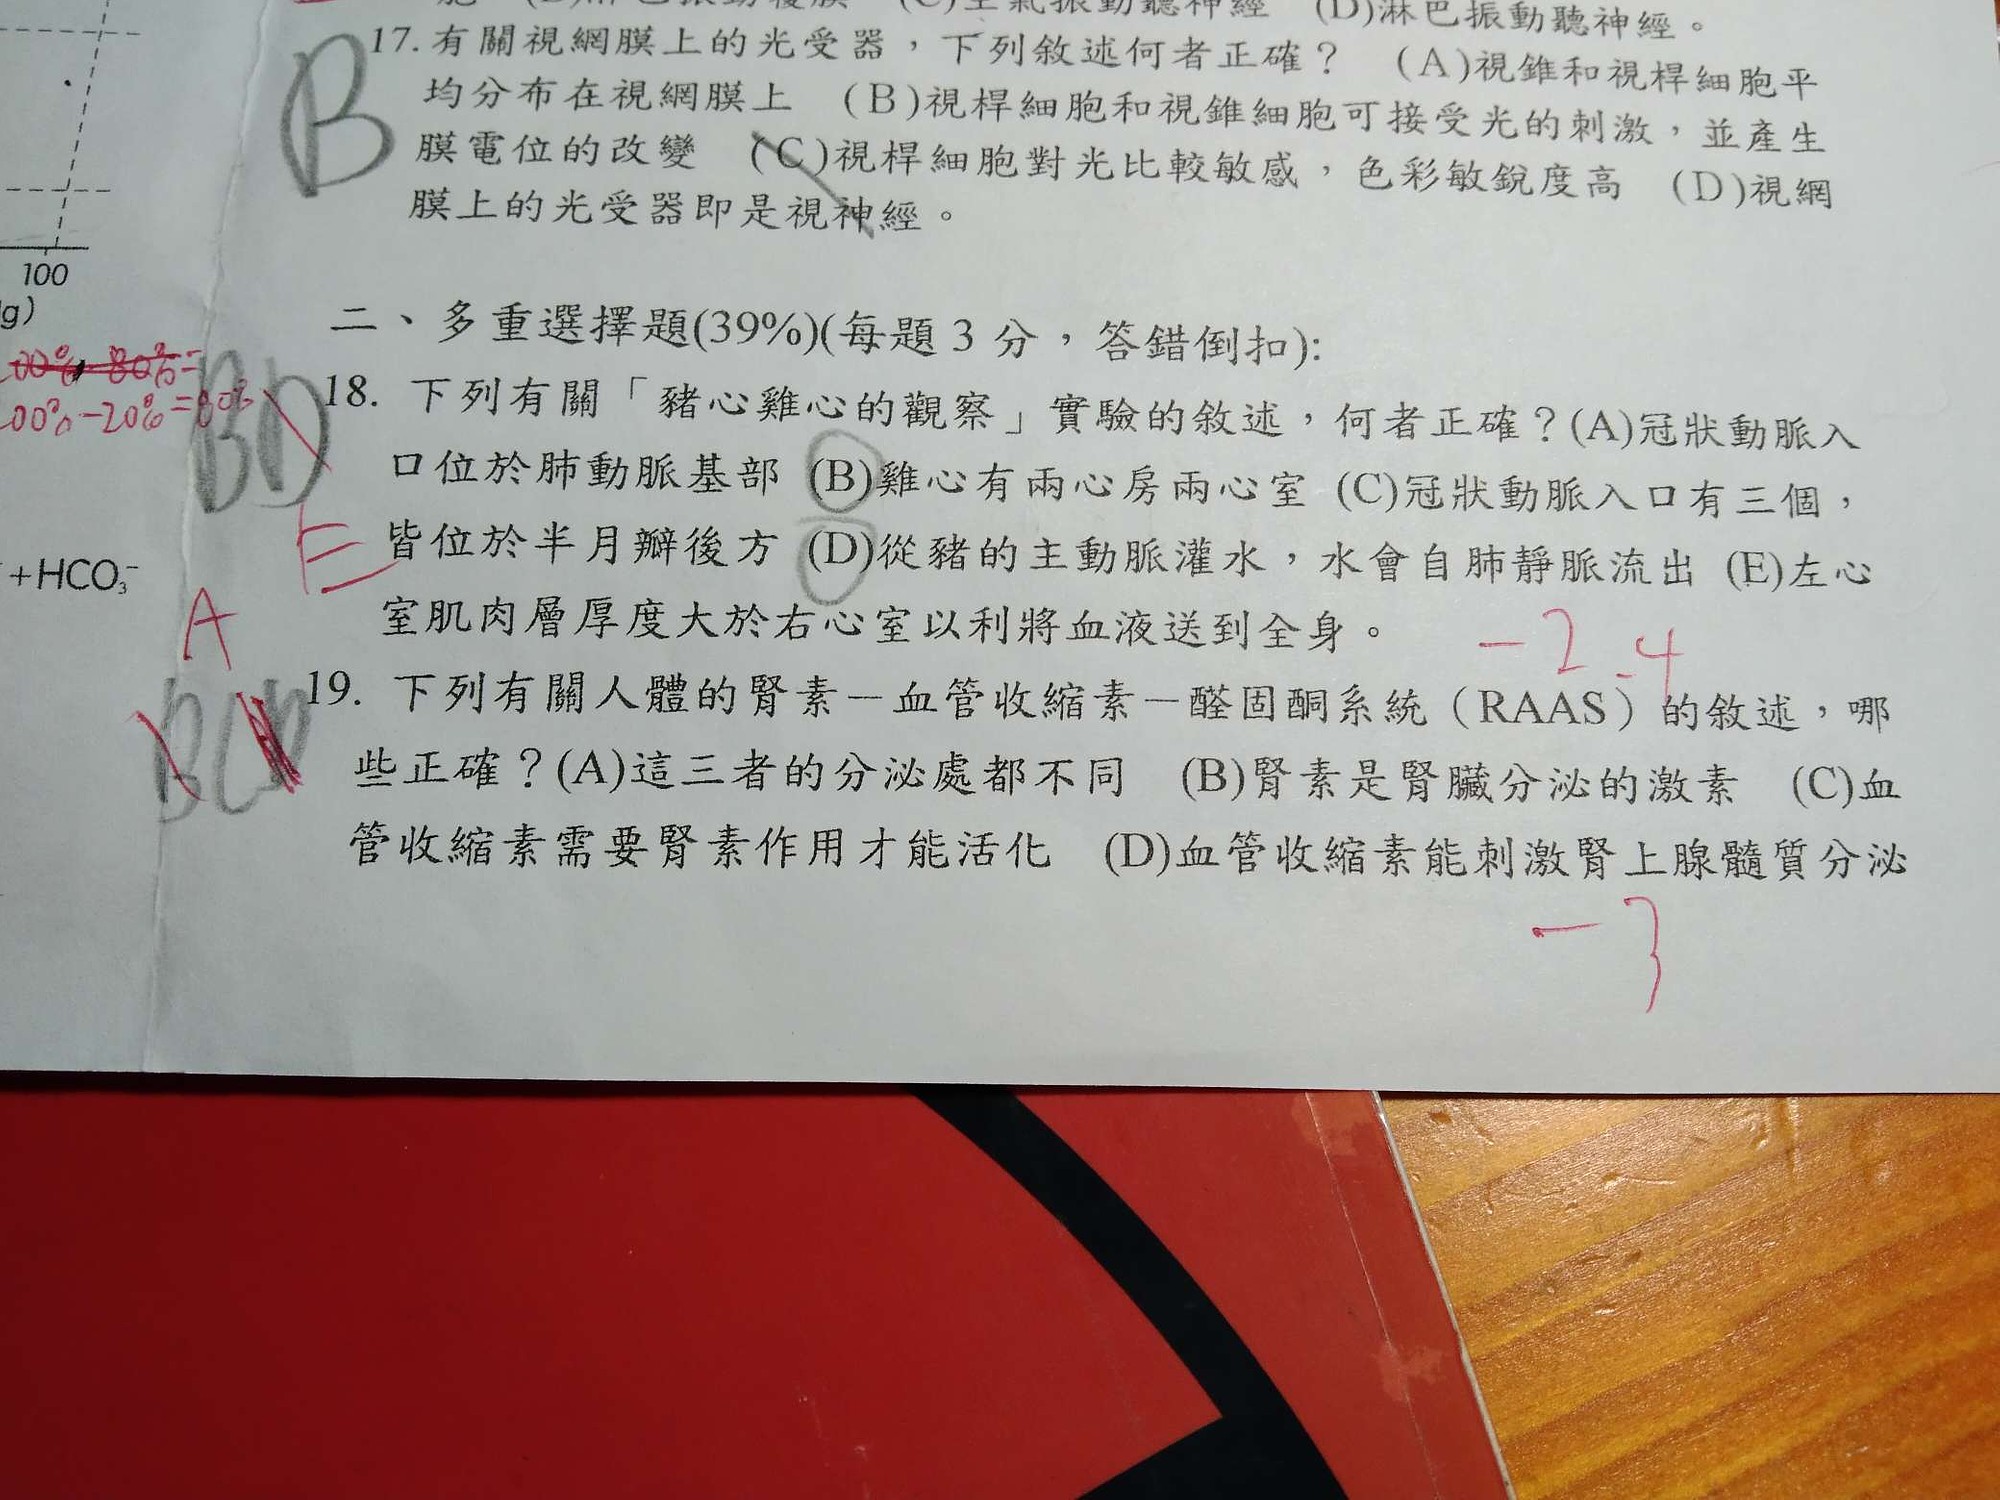 (C)空氣振動聽神經 (D)淋巴振動聽神經。
17.有關視網膜上的光受器，下列敘述何者正確？ (A)視錐和視桿細胞平
均分布在視網膜上 (B)視桿細胞和視錐細胞可接受光的刺激，並產生
膜電位的改變 (C)視桿細胞對光比較敏感，色彩敏銳度高 (D)視網
膜上的光受器即是視神經。
B
100
g)
二、多重選擇題(39%)(每題 3 分，答錯倒扣):
00%-20%=80%
BD
18. 下列有關「豬心雞心的觀察」實驗的敘述，何者正確？(A)冠狀動脈入
口位於肺動脈基部 (B)雞心有兩心房兩心室 (C)冠狀動脈入口有三個，
E
皆位於半月瓣後方 (D)從豬的主動脈灌水，水會自肺靜脈流出 (E)左心
室肌肉層厚度大於右心室以利將血液送到全身。
+HCO₃⁻
-2
-4
A
BCD
19. 下列有關人體的腎素－血管收縮素－醛固酮系統（RAAS）的敘述，哪
些正確？(A)這三者的分泌處都不同 (B)腎素是腎臟分泌的激素 (C)血
管收縮素需要腎素作用才能活化 (D)血管收縮素能刺激腎上腺髓質分泌
-3